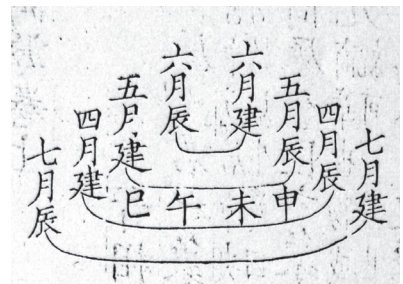 七月建
四月辰
五月辰
六月建
六月辰
五月建
四月建
七月辰
申
未
午
巳